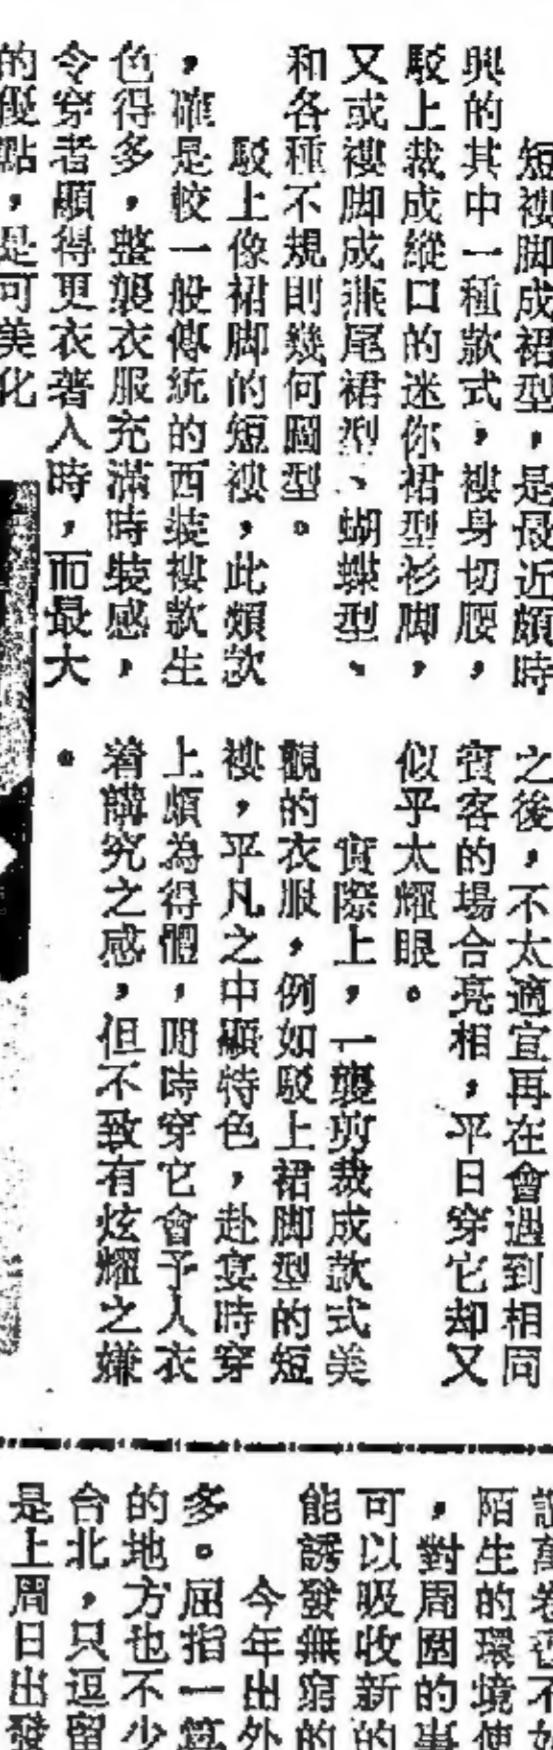 短褸脚成裙型，是最近頗時
興的其中一種款式，褸身切腰，
駁上裁成縱口的迷你裙型衫脚，
又或褸脚成燕尾裙型、蝴蝶型、
和各種不規則幾何圖型。
駁上像裙脚的短褸，此類款
，確是較一般傳統的西裝褸款生
色得多，整襲衣服充滿時裝感，
令穿者顯得更衣著入時，而最大
的優點，是可美化
之後，不太適宜再在會遇到相同
賓客的場合亮相，平日穿它却又
似乎太耀眼。
實際上，一襲剪裁成款式美
觀的衣服，例如駁上裙脚型的短
褸，平凡之中顯特色，赴宴時穿
上頗為得體，閒時穿它會予人衣
着講究之感，但不致有炫耀之嫌
。
萬卷也不如
陌生的環境使
，對周圍的事
可以吸收新的
能誘發無窮的
今年出外
多。屈指一算
的地方也不少
台北，只逗留
是上周日出發